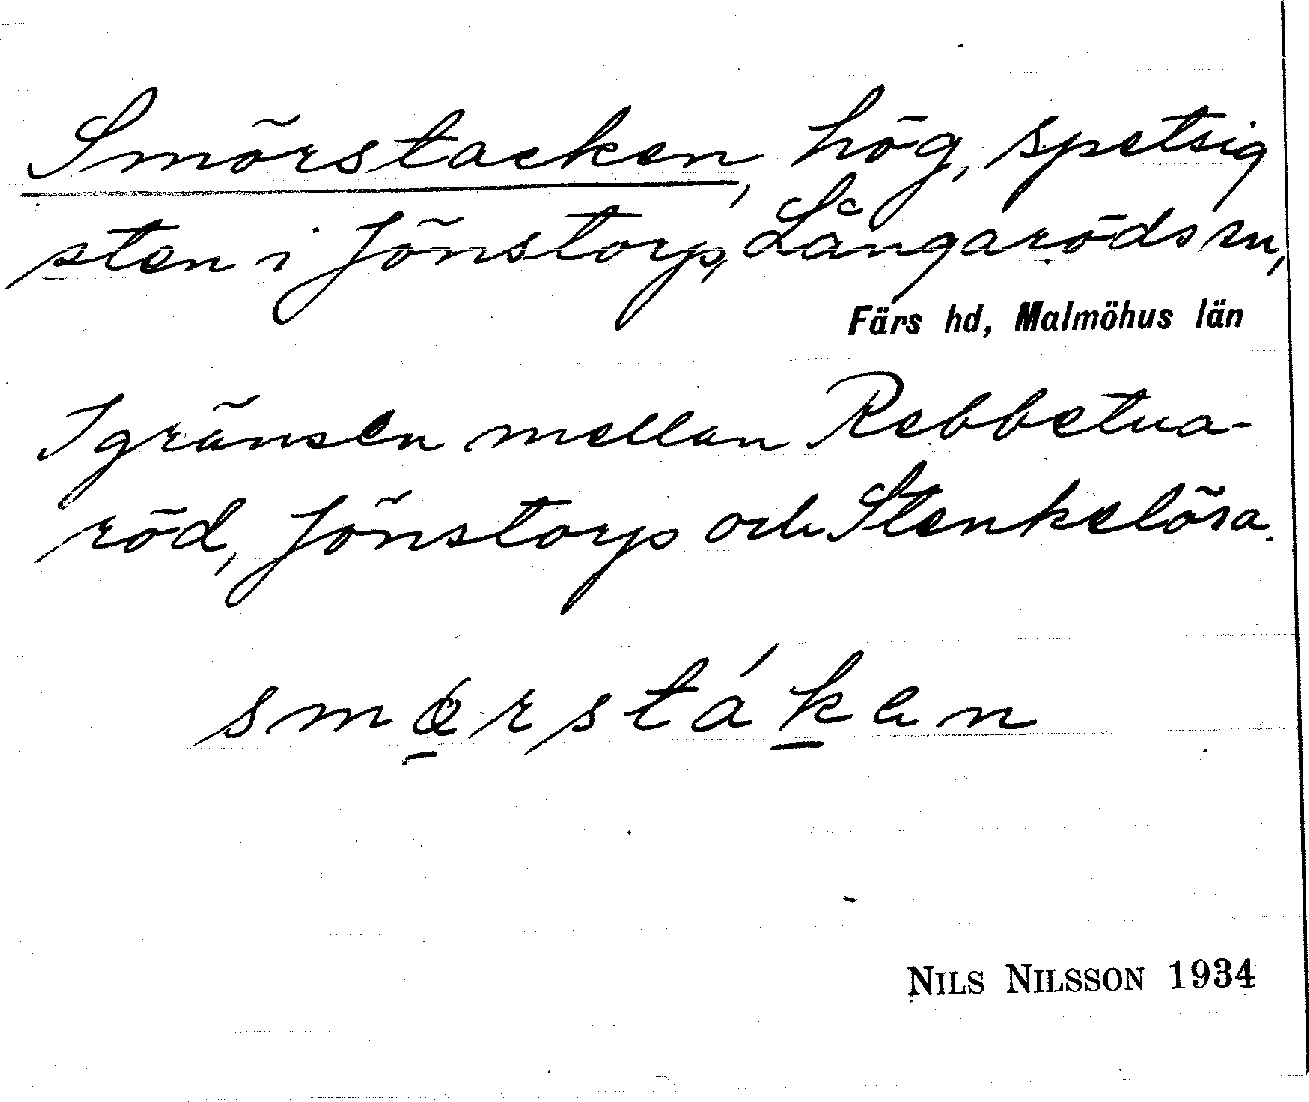 Smörstacken, hög, spetsig
sten i Jönstorp, Långaröds sn,
Färs hd, Malmöhus län
I gränsen mellan Rebbetua-
röd, Jönstorp och Stenkelösa.
smørstáken
NILS NILSSON 1934